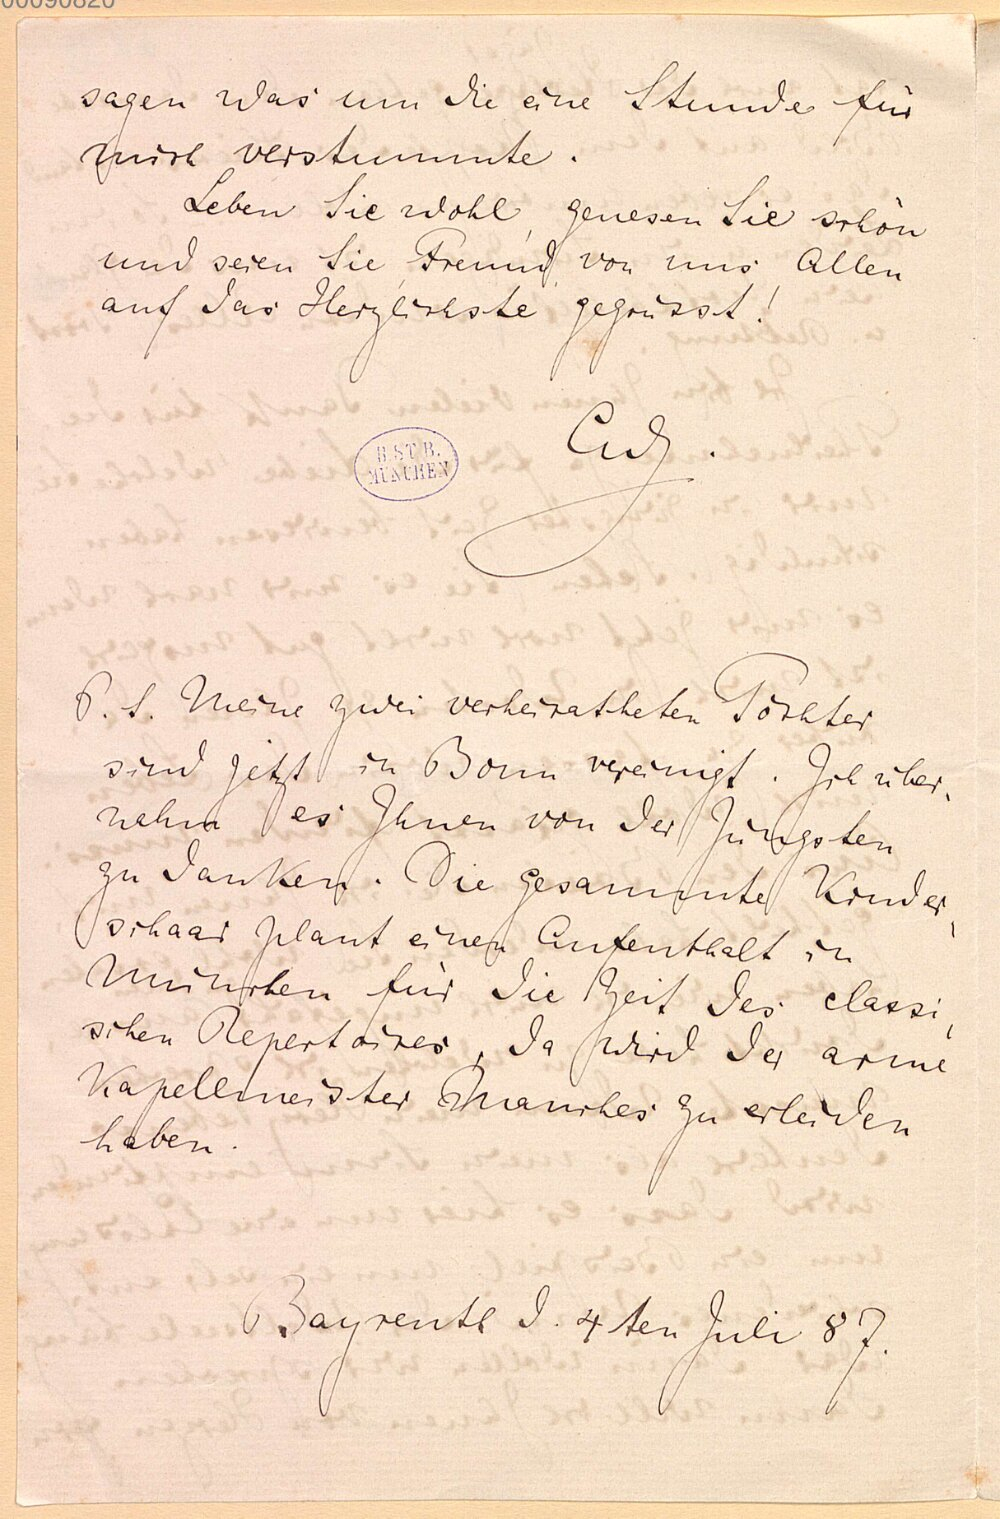 00090820
sagen was um die eine Stunde für
mich verstummte.
Leben Sie wohl, genesen Sie schön
und seien Sie, Freund, von uns Allen
auf das Herzlichste gegrüsst!
B.ST.B.
MÜNCHEN
P. S. Meine zwei verheiratheten Töchter
sind jetzt in Bonn vereinigt. Ich über-
nahm es Ihnen von der Jüngsten
zu danken. Die gesammte Kinder-
schaar plant einen Aufenthalt in
München für die Zeit des classi-
schen Repertoires, da wird der arme
Kapellmeister Manches zu erleiden
haben.
Bayreuth d. 4ten Juli 87.